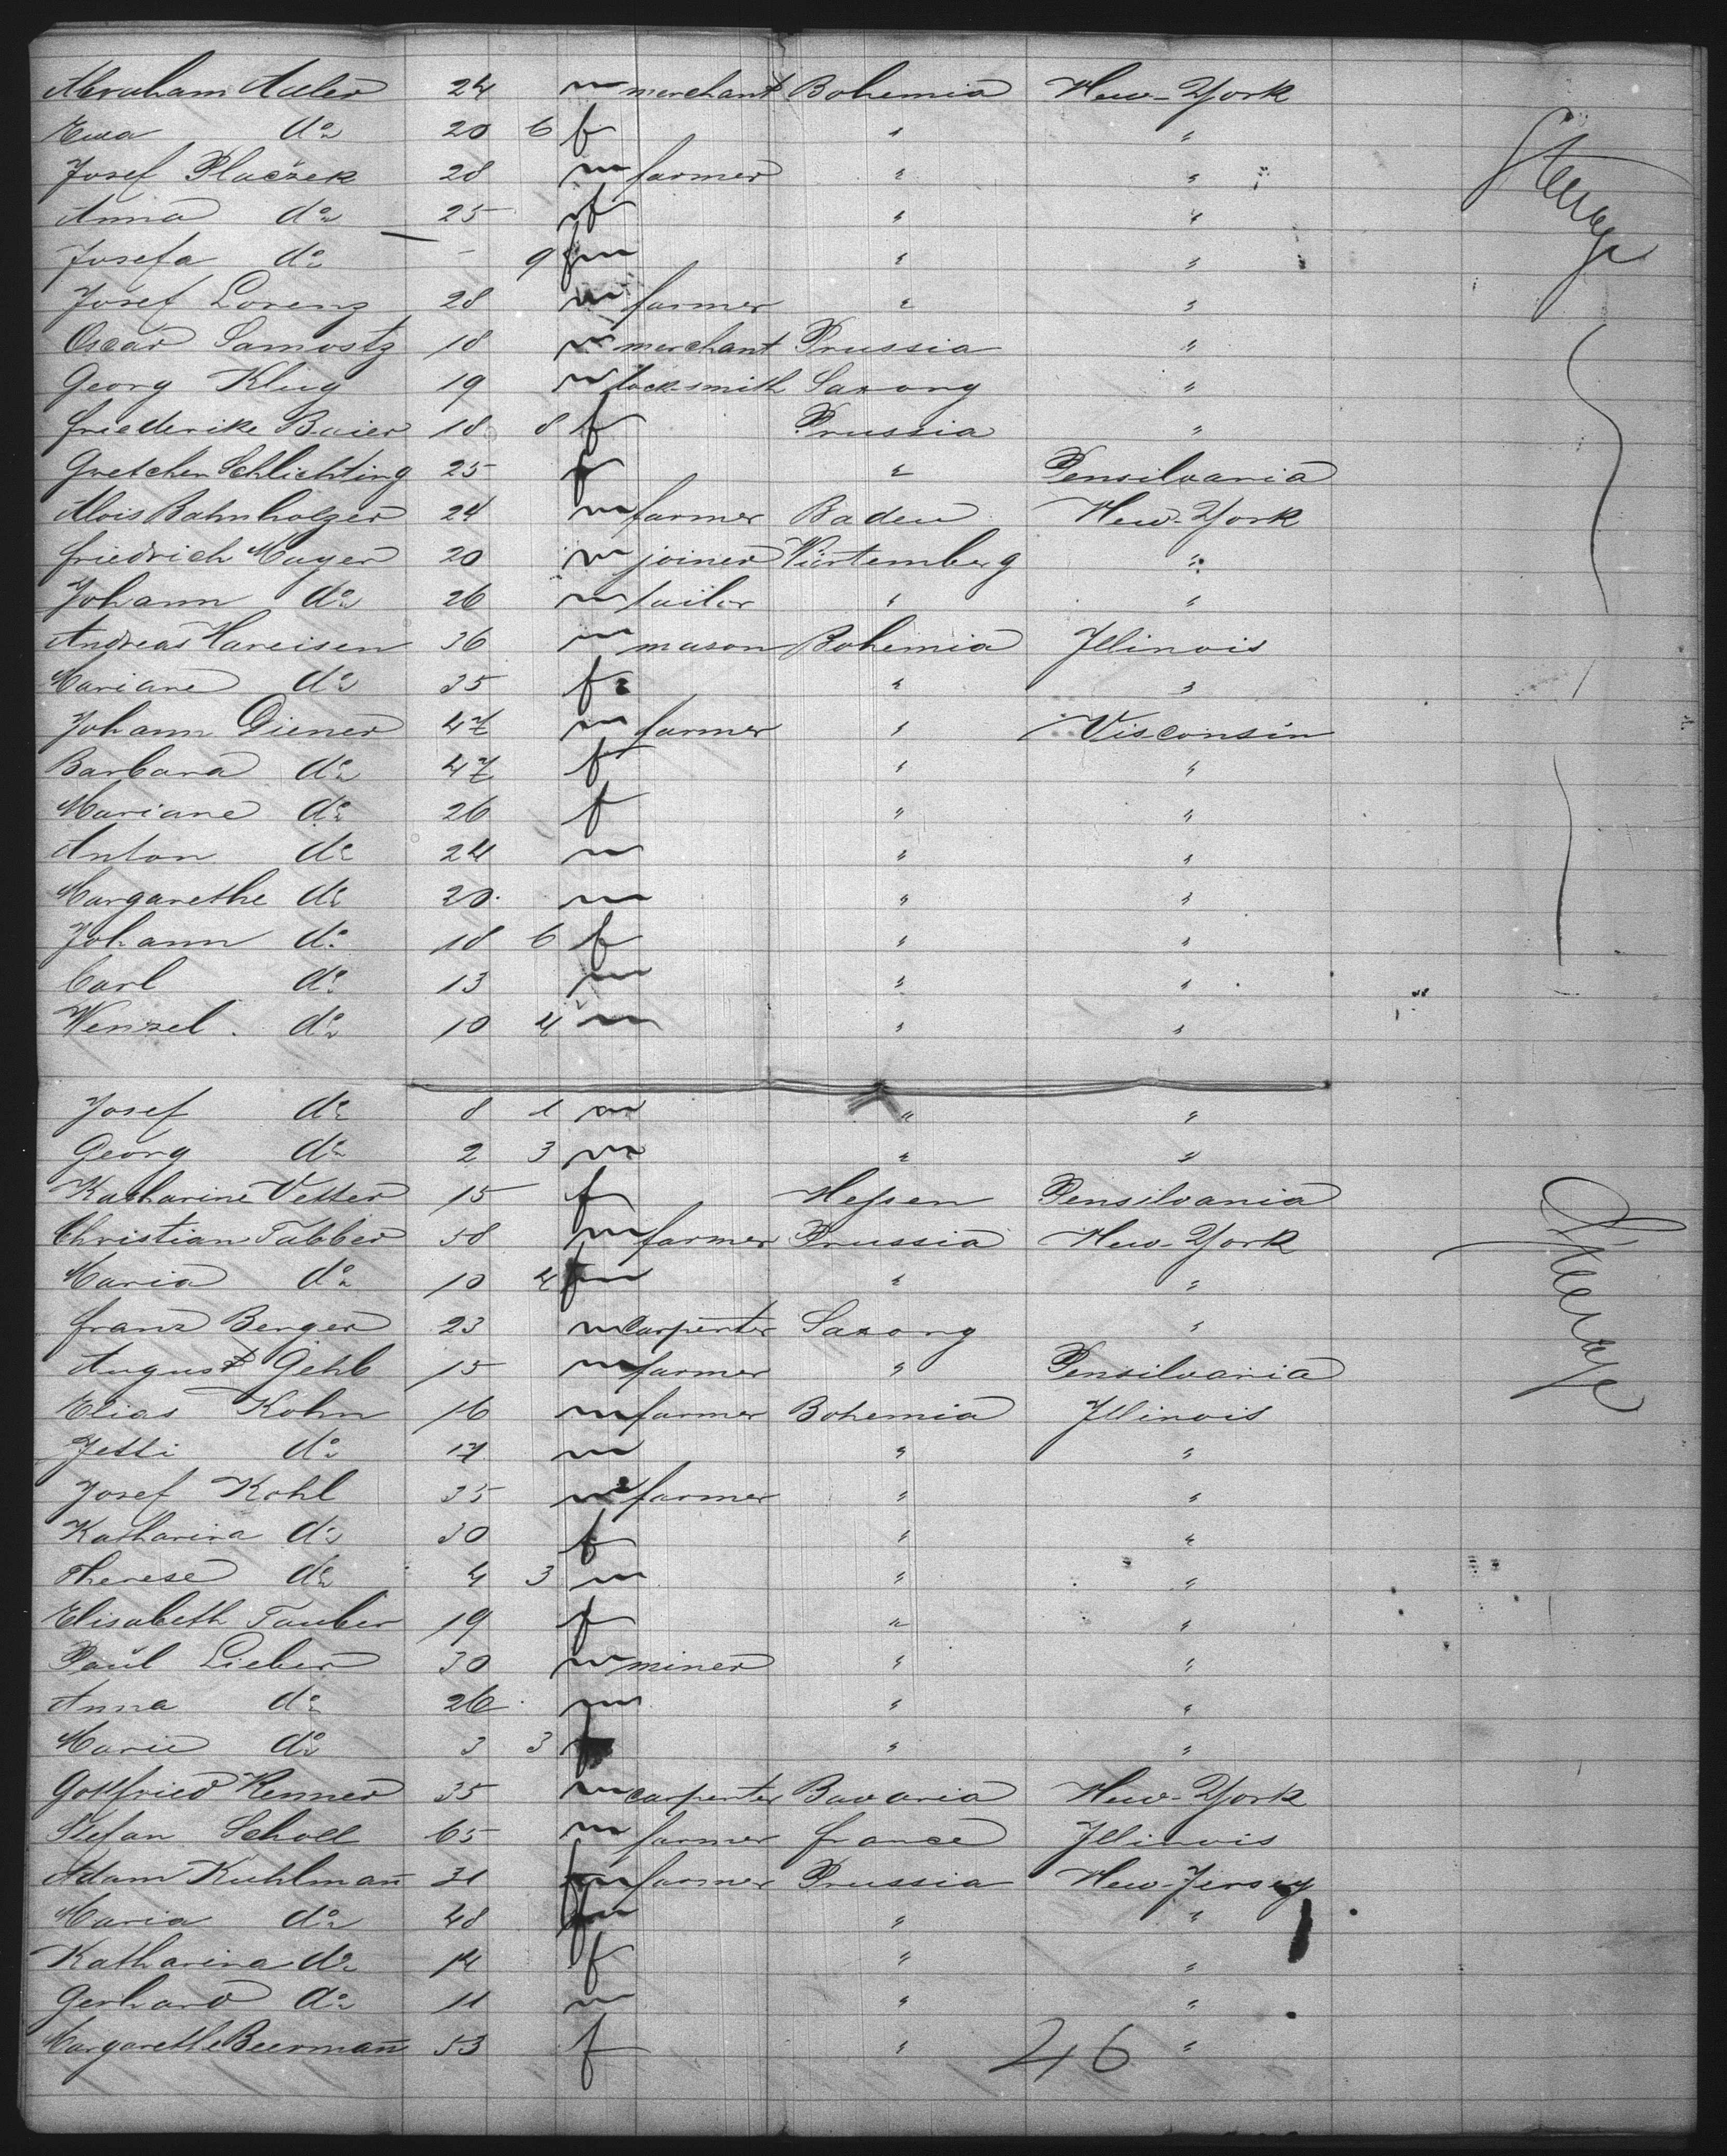 Abraham Adler 24 m merchant Bohemia New-York
Ewa do 20 6 f " "
Josef Placzek 28 m farmer " "
Anna do 25 f " "
Josefa do - 9 " "
Josef Lorenz 28 m farmer " "
Oscar Samostz 18 m merchant Prussia "
Georg Klug 19 m locksmith Saxony "
Friederike Baier 18 8 f Prussia "
Gretchen Schlichting 25 f " Pensilvania
Alois Bahnholzer 24 m farmer Baden New-York
Friedrich Mayer 20 m joiner Würtemberg "
Johann do 26 m tailor " "
Andreas Hareisen 36 m mason Bohemia Illinois
Mariane do 35 f " "
Johann Diener 47 m farmer " Visconsin
Barbara do 47 f " "
Mariane do 26 f " "
Anton do 24 m " "
Margarethe do 20 m " "
Johann do 18 6 f " "
Carl do 13 m " "
Wenzel do 10 4 m " "
Josef do 8 1 m " "
Georg do 2 3 m " "
Katharine Vetter 15 f Hessen Pensilvania
Christian Tabber 58 m farmer Prussia New-York
Maria do 10 4 " "
Franz Berger 23 m carpenter Saxony "
August Gehb 15 m farmer " Pensilvania
Elias Kohn 16 m farmer Bohemia Illinois
Jetti do m " "
Josef Kohl 35 m farmer " "
Katharina do 30 f " "
Therese do 4 3 m " "
Elisabeth Tauber 19 f " "
Paul Lieber 30 m miner " "
Anna do 26 m " "
Marie do 3 3 f " "
Gottfried Renner 35 m carpenter Bavaria New-York
Stefan Scholl 65 m farmer France Illinois
Adam Kuhlman̄ 31 m farmer Prussia New-Jersey
Maria do 48 " "
Katharina do 14 f " "
Gerhard do 11 m " "
Margarethe Beerman̄ 53 f " "
46
Steerage
Steerage